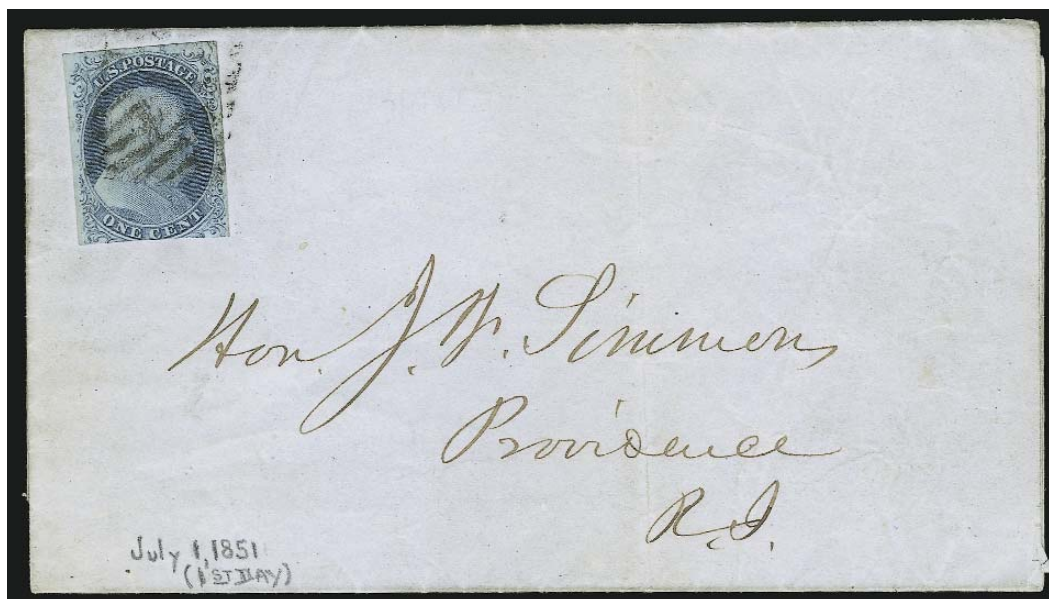 U.S. POSTAGE
ONE CENT
Hon. J. F. Simmons
Providence
R.I.
July 1, 1851
(1ST DAY)